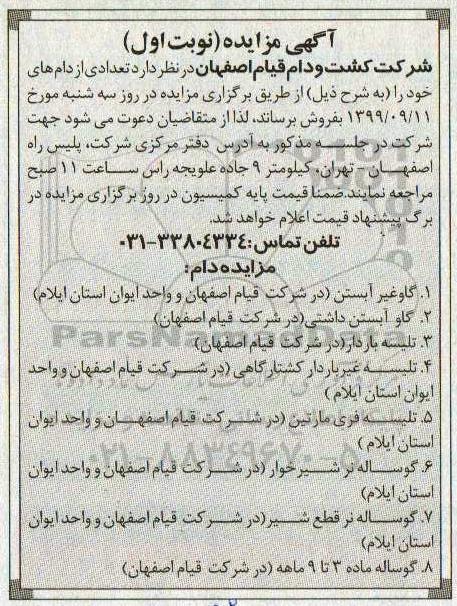 آگهی مزایده (نوبت اول)
شرکت کشت و دام قیام اصفهان در نظر دارد تعدادی از دام های
خود را (به شرح ذیل) از طریق برگزاری مزایده در روز سه شنبه مورخ
۱۳۹۹/۰۹/۱۱ بفروش برساند، لذا از متقاضیان دعوت می شود جهت
شرکت در جلسه مذکور به آدرس دفتر مرکزی شرکت، پلیس راه
اصفهان - تهران، کیلومتر ۹ جاده علویجه راس ساعت ۱۱ صبح
مراجعه نمایند. ضمنا قیمت پایه کمیسیون در روز برگزاری مزایده در
برگ پیشنهاد قیمت اعلام خواهد شد.
تلفن تماس: ۳۳۸۰۴۳۳۴-۰۳۱
مزایده دام:
۱. گاو غیر آبستن (در شرکت قیام اصفهان و واحد ایوان استان ایلام)
۲. گاو آبستن داشتی (در شرکت قیام اصفهان)
ParsNamadData
۳. تلیسه باردار (در شرکت قیام اصفهان)
۴. تلیسه غیرباردار کشتارگاهی (در شرکت قیام اصفهان و واحد
ایوان استان ایلام )
۵. تلیسه فری مارتین (در شرکت قیام اصفهان و واحد ایوان
استان ایلام )
۰۲۱-۸۸۳۴۹۶۷۰-۵
۶. گوساله نر شیرخوار (در شرکت قیام اصفهان و واحد ایوان
استان ایلام)
۷. گوساله نر قطع شیر (در شرکت قیام اصفهان و واحد ایوان
استان ایلام)
۸. گوساله ماده ۳ تا ۹ ماهه (در شرکت قیام اصفهان)